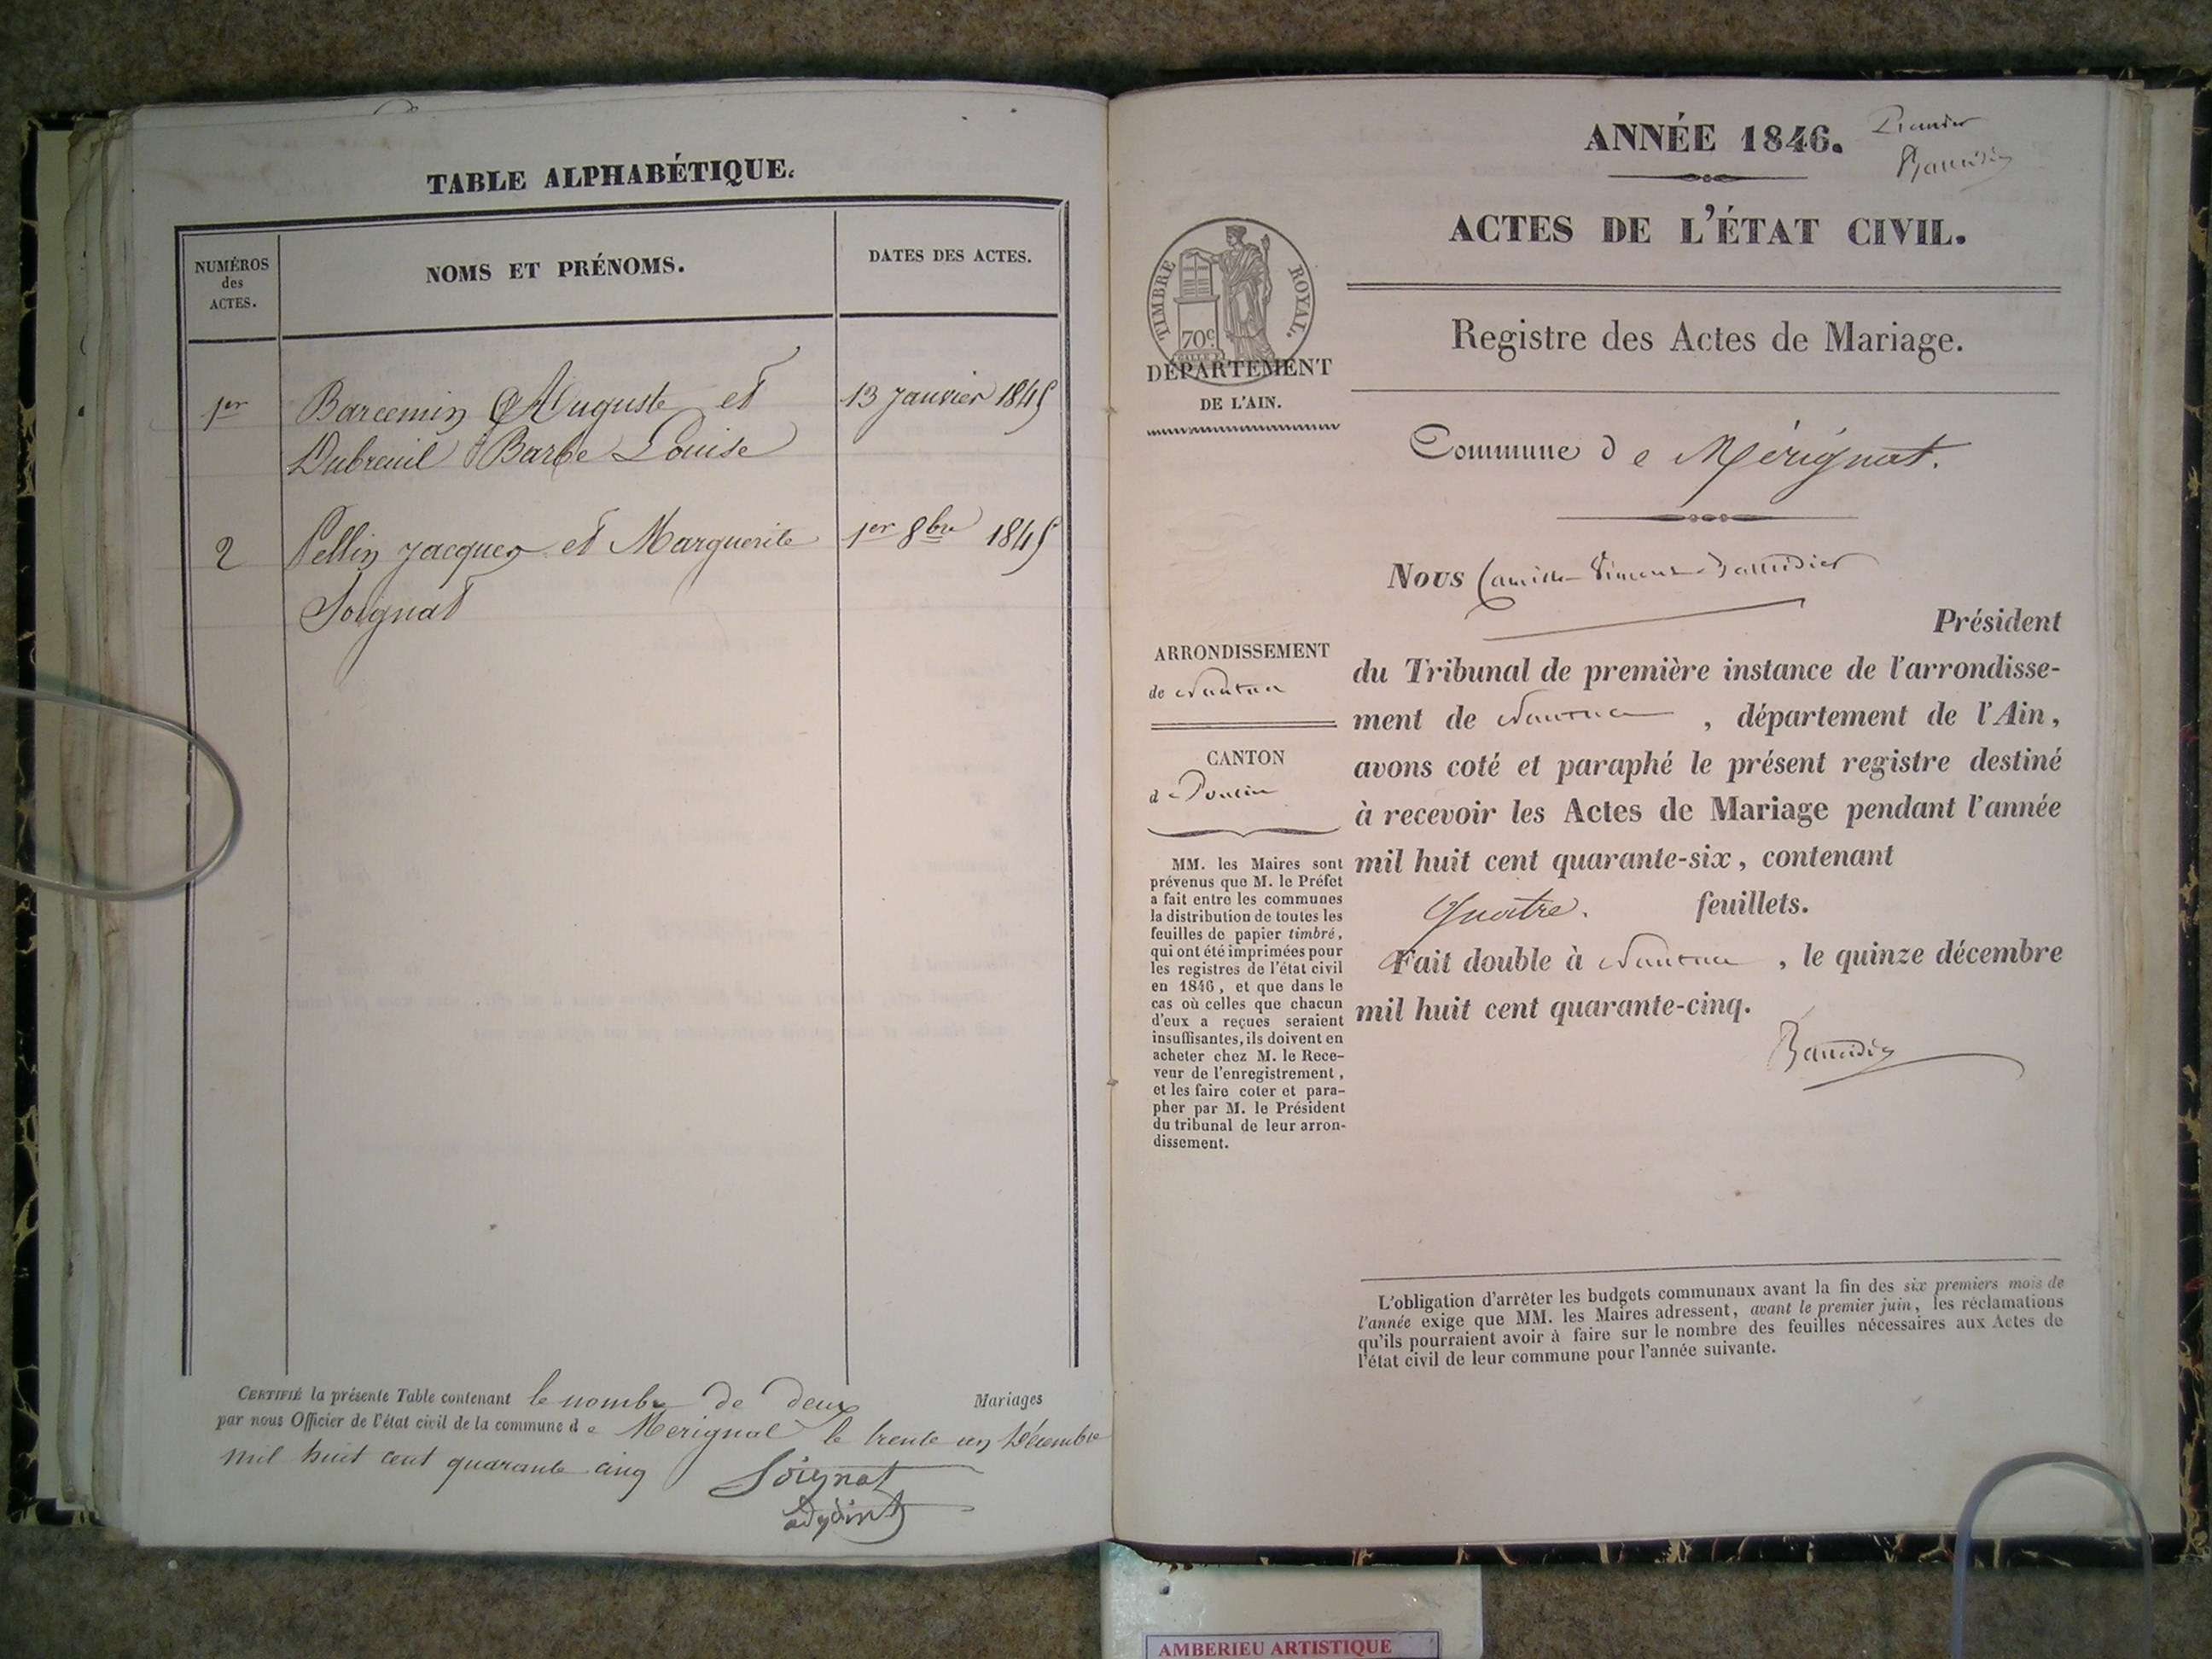 TABLE ALPHABÉTIQUE.
NUMÉROS
des
ACTES.
NOMS ET PRÉNOMS.
DATES DES ACTES.
1er
Barcemin Auguste et
13 Janvier 1845
Dubreuil Barbe Louise
2
Pellin Jacques et Marguerite
1er 8bre 1845
Soignat
CERTIFIÉ la présente Table contenant le nombre de deux Mariages
par nous Officier de l'état civil de la commune de Merignat le trente un Décembre
mil huit cent quarante cinq
Soignat
adjoint
ANNÉE 1846.
ACTES DE L'ÉTAT CIVIL.
TIMBRE ROYAL.
70c
DÉPARTEMENT
DE L'AIN.
Registre des Actes de Mariage.
Commune de Mérignat.
Nous Camille
Président
ARRONDISSEMENT
de Nantua
CANTON
de Poncin
MM. les Maires sont
prévenus que M. le Préfet
a fait entre les communes
la distribution de toutes les
feuilles de papier timbré,
qui ont été imprimées pour
les registres de l'état civil
en 1846, et que dans le
cas où celles que chacun
d'eux a reçues seraient
insuffisantes, ils doivent en
acheter chez M. le Rece-
veur de l'enregistrement,
et les faire coter et para-
pher par M. le Président
du tribunal de leur arron-
dissement.
du Tribunal de première instance de l'arrondisse-
ment de Nantua, département de l'Ain,
avons coté et paraphé le présent registre destiné
à recevoir les Actes de Mariage pendant l'année
mil huit cent quarante-six, contenant
Quatre. feuillets.
Fait double à Nantua, le quinze décembre
mil huit cent quarante-cinq.
L'obligation d'arrêter les budgets communaux avant la fin des six premiers mois de
l'année exige que MM. les Maires adressent, avant le premier juin, les réclamations
qu'ils pourraient avoir à faire sur le nombre des feuilles nécessaires aux Actes de
l'état civil de leur commune pour l'année suivante.
AMBERIEU ARTISTIQUE